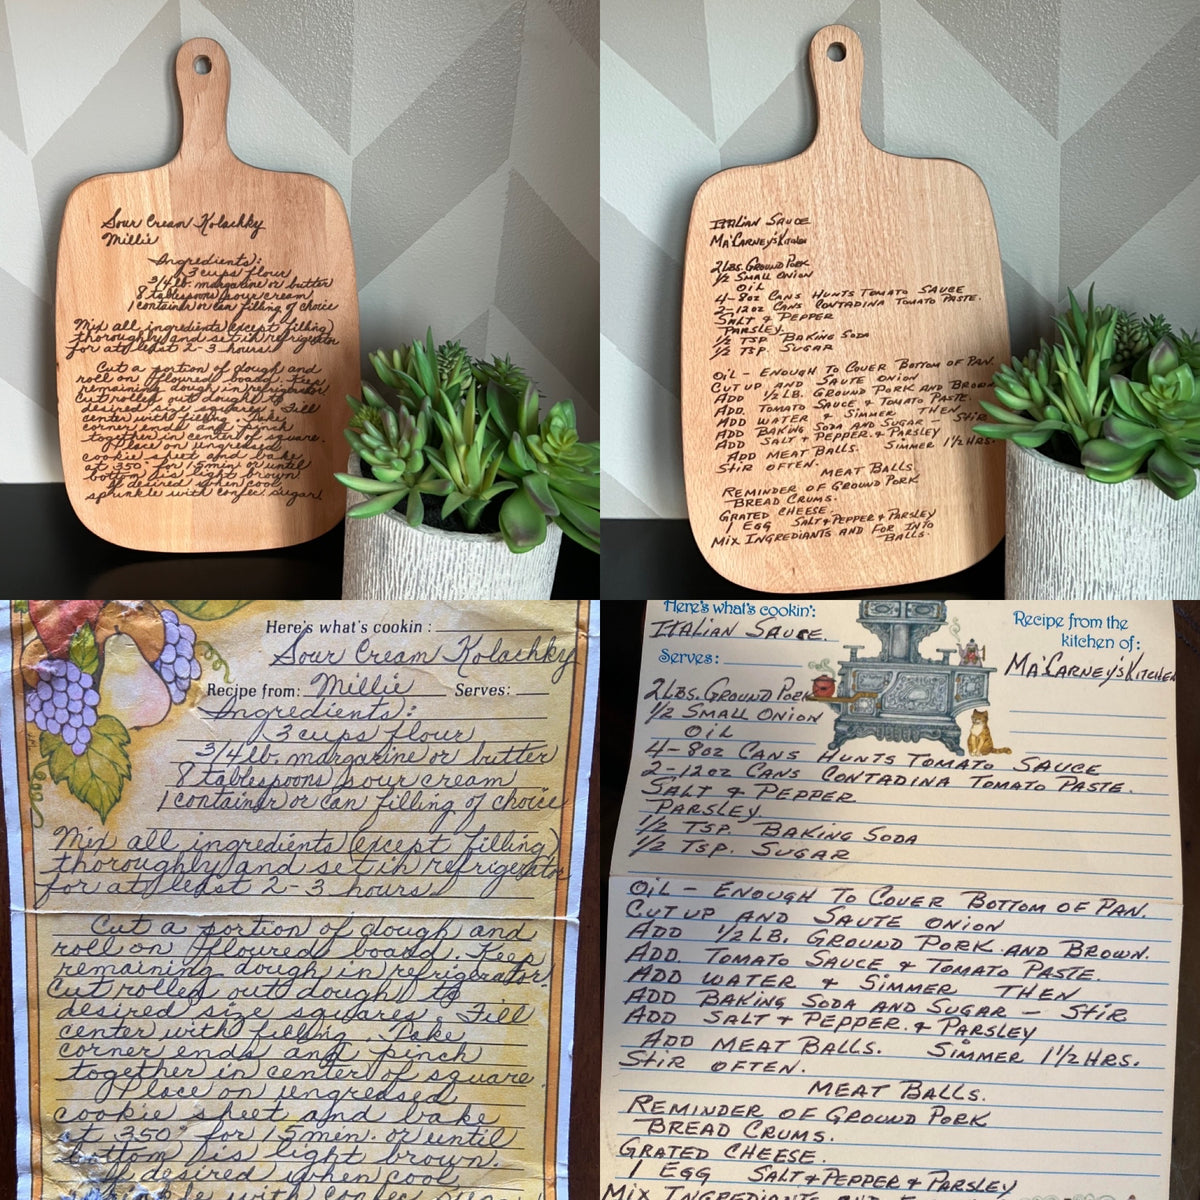 Sour Cream Kolachky
Millie
Ingredients:
3 cups flour
3/4 lb. margarine or butter
8 tablespoons sour cream
1 container or can filling of choice
Mix all ingredients (except filling)
thoroughly and set in refrigerator
for at least 2-3 hours.
Cut a portion of dough and
roll on floured board. Keep
remaining dough in refrigerator.
Cut rolled out dough to
desired size squares. Fill
center with filling. Take
corner ends and pinch
together in center of square.
Place on ungreased
cookie sheet and bake
at 350° for 15 min. or until
bottom is light brown.
If desired when cool
sprinkle with confec. sugar
ITALIAN SAUCE
MA'CARNEY'S KITCHEN
2 LBS. GROUND PORK
1/2 SMALL ONION
OIL
4-8oz CANS HUNTS TOMATO SAUCE
2-12oz CANS CONTADINA TOMATO PASTE.
SALT & PEPPER
PARSLEY
1/2 TSP. BAKING SODA
1/2 TSP. SUGAR
OIL - ENOUGH TO COVER BOTTOM OF PAN.
CUT UP AND SAUTE ONION
ADD 1/2 LB. GROUND PORK AND BROWN
ADD. TOMATO SAUCE & TOMATO PASTE.
ADD WATER & SIMMER THEN
ADD BAKING SODA AND SUGAR - STIR
ADD SALT & PEPPER. & PARSLEY
ADD MEAT BALLS. SIMMER 1 1/2 HRS.
STIR OFTEN.
MEAT BALLS.
REMINDER OF GROUND PORK
BREAD CRUMS.
GRATED CHEESE.
1 EGG SALT & PEPPER & PARSLEY
MIX INGREDIANTS AND FOR INTO
BALLS.
Here's what's cookin:
Sour Cream Kolachky
Recipe from: Millie Serves:
Ingredients:
3 cups flour
3/4 lb. margarine or butter
8 tablespoons sour cream
1 container or can filling of choice
Mix all ingredients (except filling)
thoroughly and set in refrigerator
for at least 2-3 hours.
Cut a portion of dough and
roll on floured board. Keep
remaining dough in refrigerator.
Cut rolled out dough to
desired size squares. Fill
center with filling. Take
corner ends and pinch
together in center of square.
Place on ungreased
cookie sheet and bake
at 350° for 15 min. or until
bottom is light brown.
If desired when cool
sprinkle with confec. sugar
Here's what's cookin':
ITALIAN SAUCE.
Serves:
Recipe from the
kitchen of:
MA'CARNEY'S KITCHEN
2 LBS. GROUND PORK
1/2 SMALL ONION
OIL
4-8oz CANS HUNTS TOMATO SAUCE
2-12oz CANS CONTADINA TOMATO PASTE.
SALT & PEPPER
PARSLEY
1/2 TSP. BAKING SODA
1/2 TSP. SUGAR
OIL - ENOUGH TO COVER BOTTOM OF PAN.
CUT UP AND SAUTE ONION
ADD 1/2 LB. GROUND PORK AND BROWN.
ADD. TOMATO SAUCE & TOMATO PASTE.
ADD WATER & SIMMER THEN
ADD BAKING SODA AND SUGAR - STIR
ADD SALT & PEPPER. & PARSLEY
ADD MEAT BALLS. SIMMER 1 1/2 HRS.
STIR OFTEN.
MEAT BALLS.
REMINDER OF GROUND PORK
BREAD CRUMS.
GRATED CHEESE.
1 EGG SALT & PEPPER & PARSLEY
MIX INGREDIANTS AND